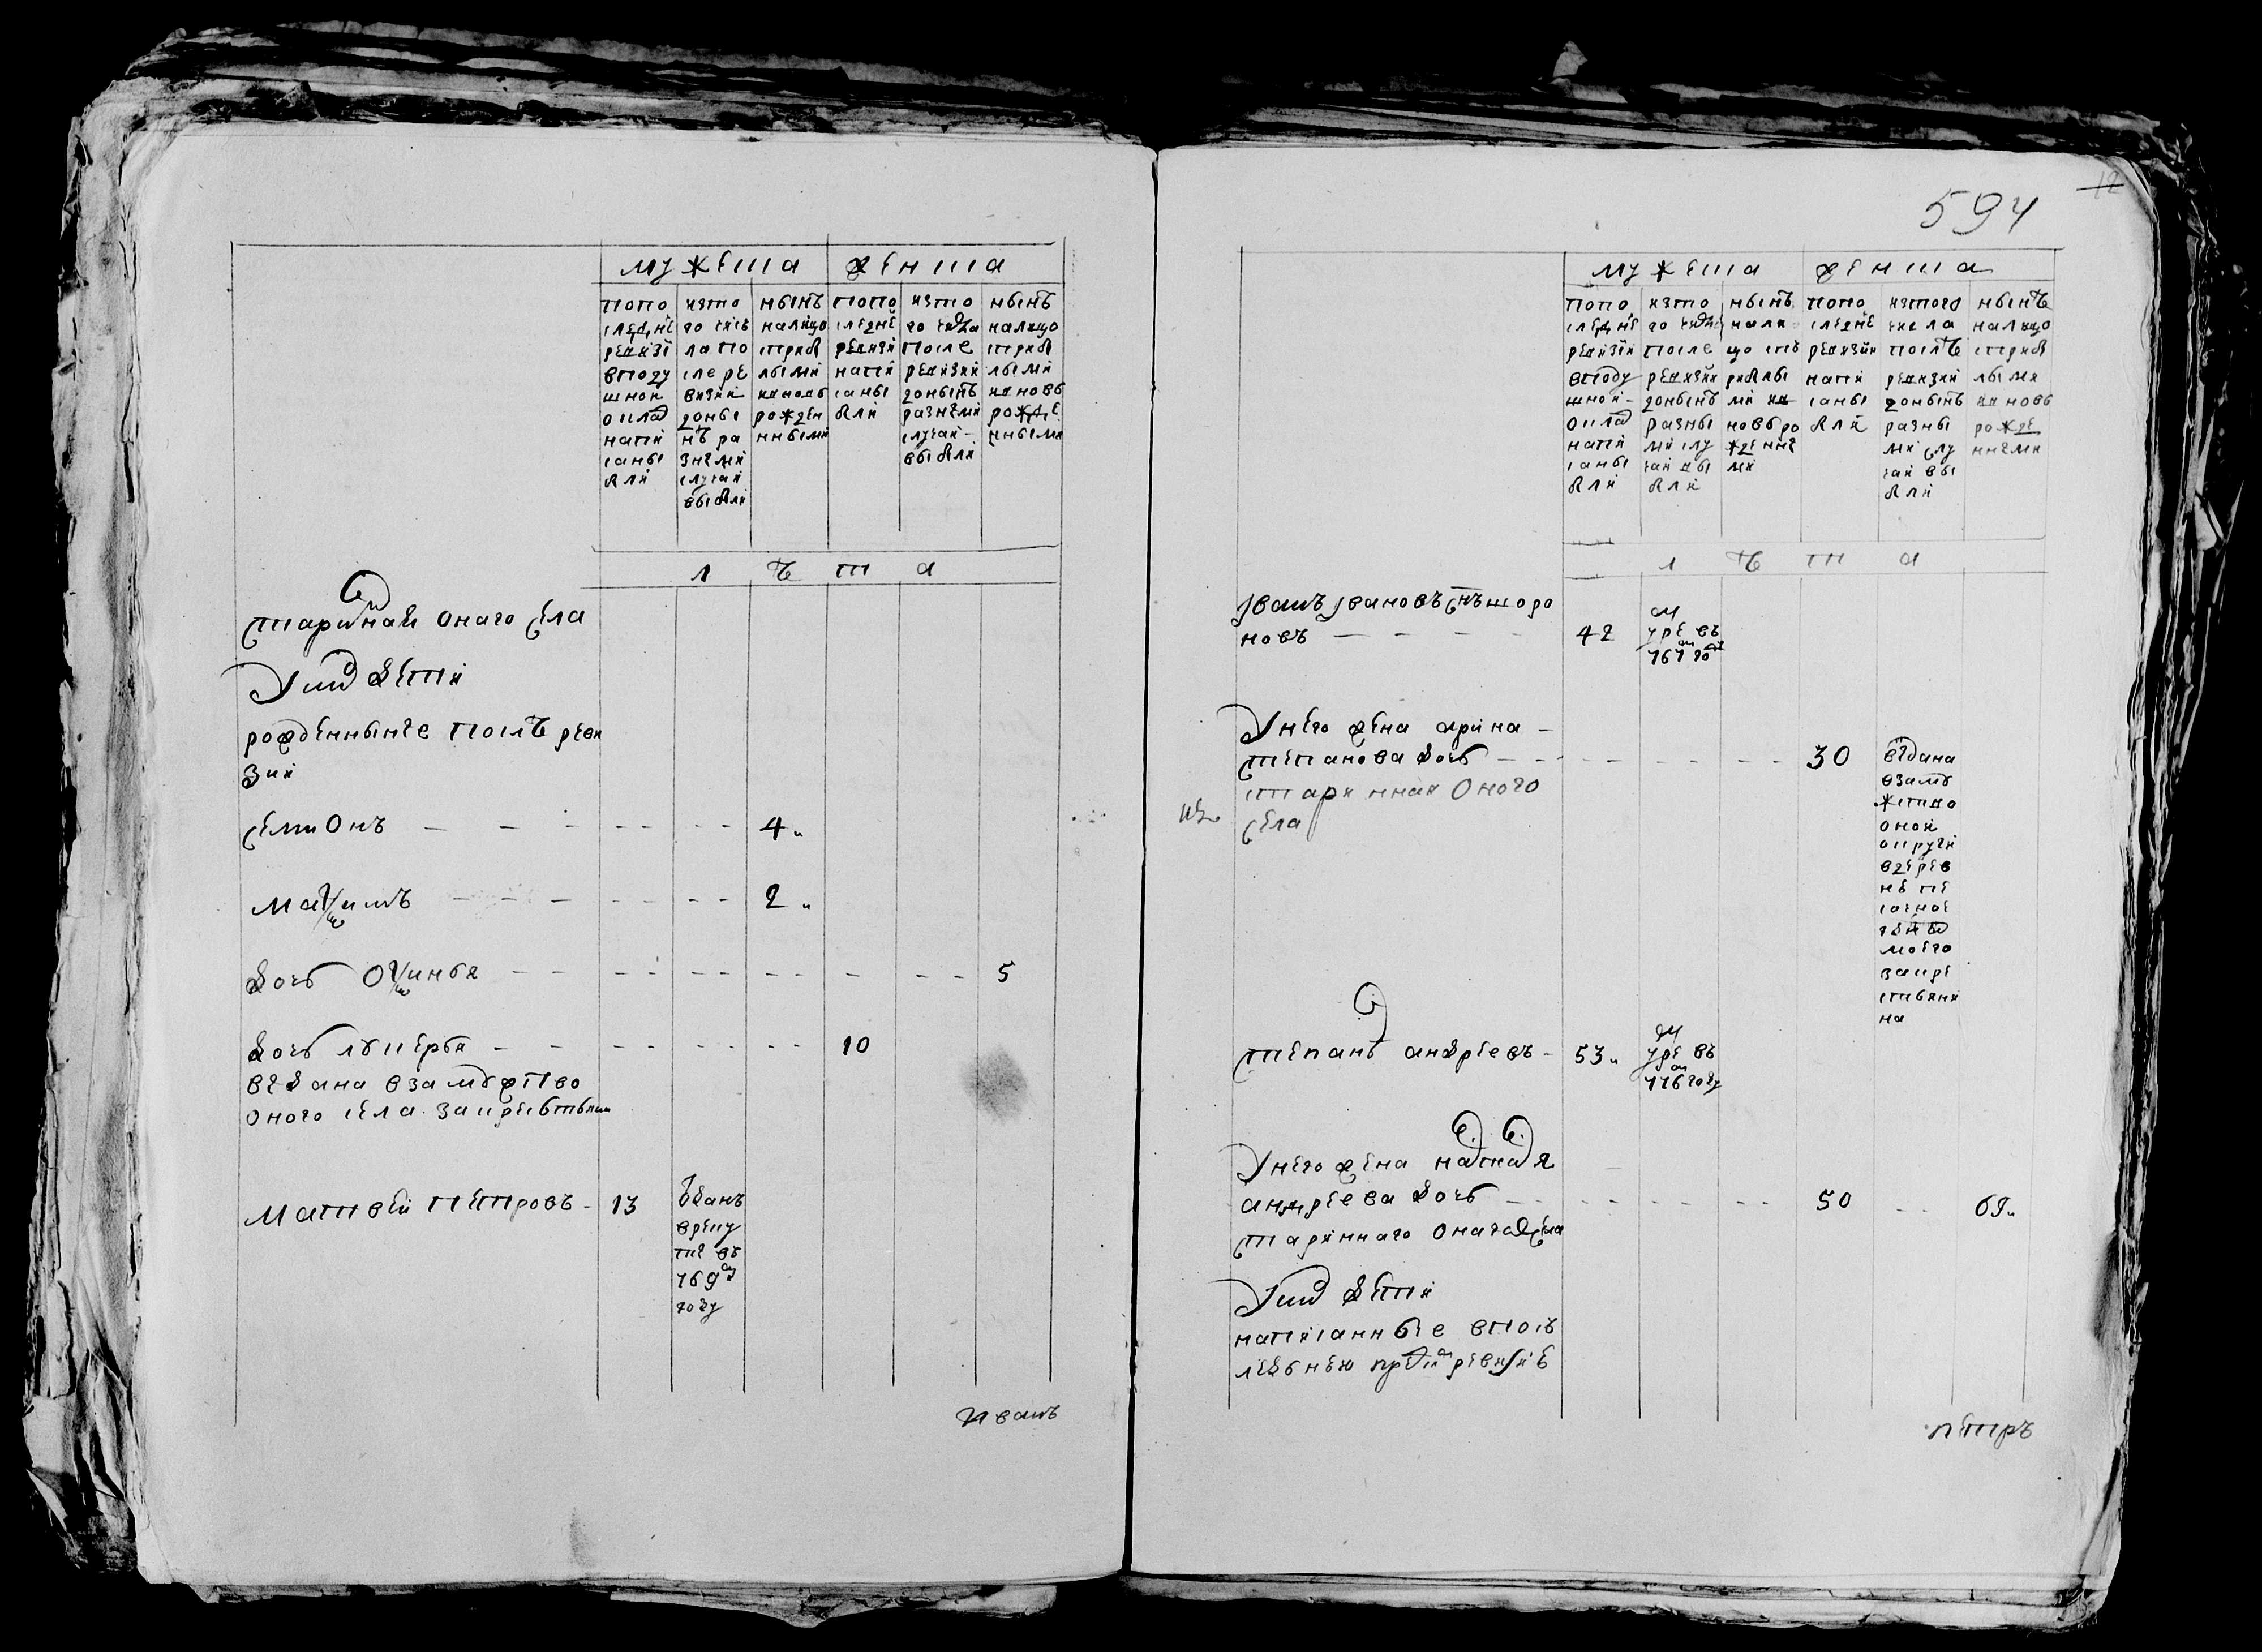 мужеска
женска
попо
следне
ревизіи
вподу
шной
окладъ
напи
саны
были
изто
го числ
ла по
сле ре
визии
доны
нѣ ра
зными
случаи
выбыли
нынѣ
налицо
сприбы
лыми
и новь
рожден
нными
попо
следней
ревизіи
напи
саны
были
изто
го числа
после
ревизии
донынѣ
разными
случаи
выбыли
нынѣ
налицо
сприбы
лыми
и новь
рожде
нными
лѣта
старинная оного села
У них дети
рожденныые послѣ реви
зии
семионъ 4
максимъ 2
дочь оксинья 5
дочь лукерья 10
выдана взамужство
оного села за крестьяни
матвей петровъ 13
ѿданъ
врекру
ты въ
769м
году
иванъ
594
12
мужеска
женска
попо
следне
ревизіи
вподу
шной
окладъ
напи
саны
были
изто
го числа
после
ревизии
донынѣ
разны
ми слу
чаи вы
были
нынѣ
нали
цо съ
прибы
ми и
новь ро
жденны
ми
попо
следне
ревизіи
напи
саны
были
изтого
числа
послѣ
ревизии
донынѣ
разны
ми слу
чаи вы
были
нынѣ
налицо
сприбы
лыми
и новь
рожде
нными
лѣта
иванъ ивановъ снъ
новъ 42
умре въ
767м году
У него жена арина
степанова дочь 30
старинная оного
села
выдана
взаму
жство
оной
округи
вдерев
не пе
сочное
моего
за кре
стьяни
на
степанъ андреевъ 53
умре въ
776м году
У него жена настасья
андреева дочь 50 69
стариннаго онаго села
У них дети
написанные впос
ледьнею пред сим ревизие
петръ